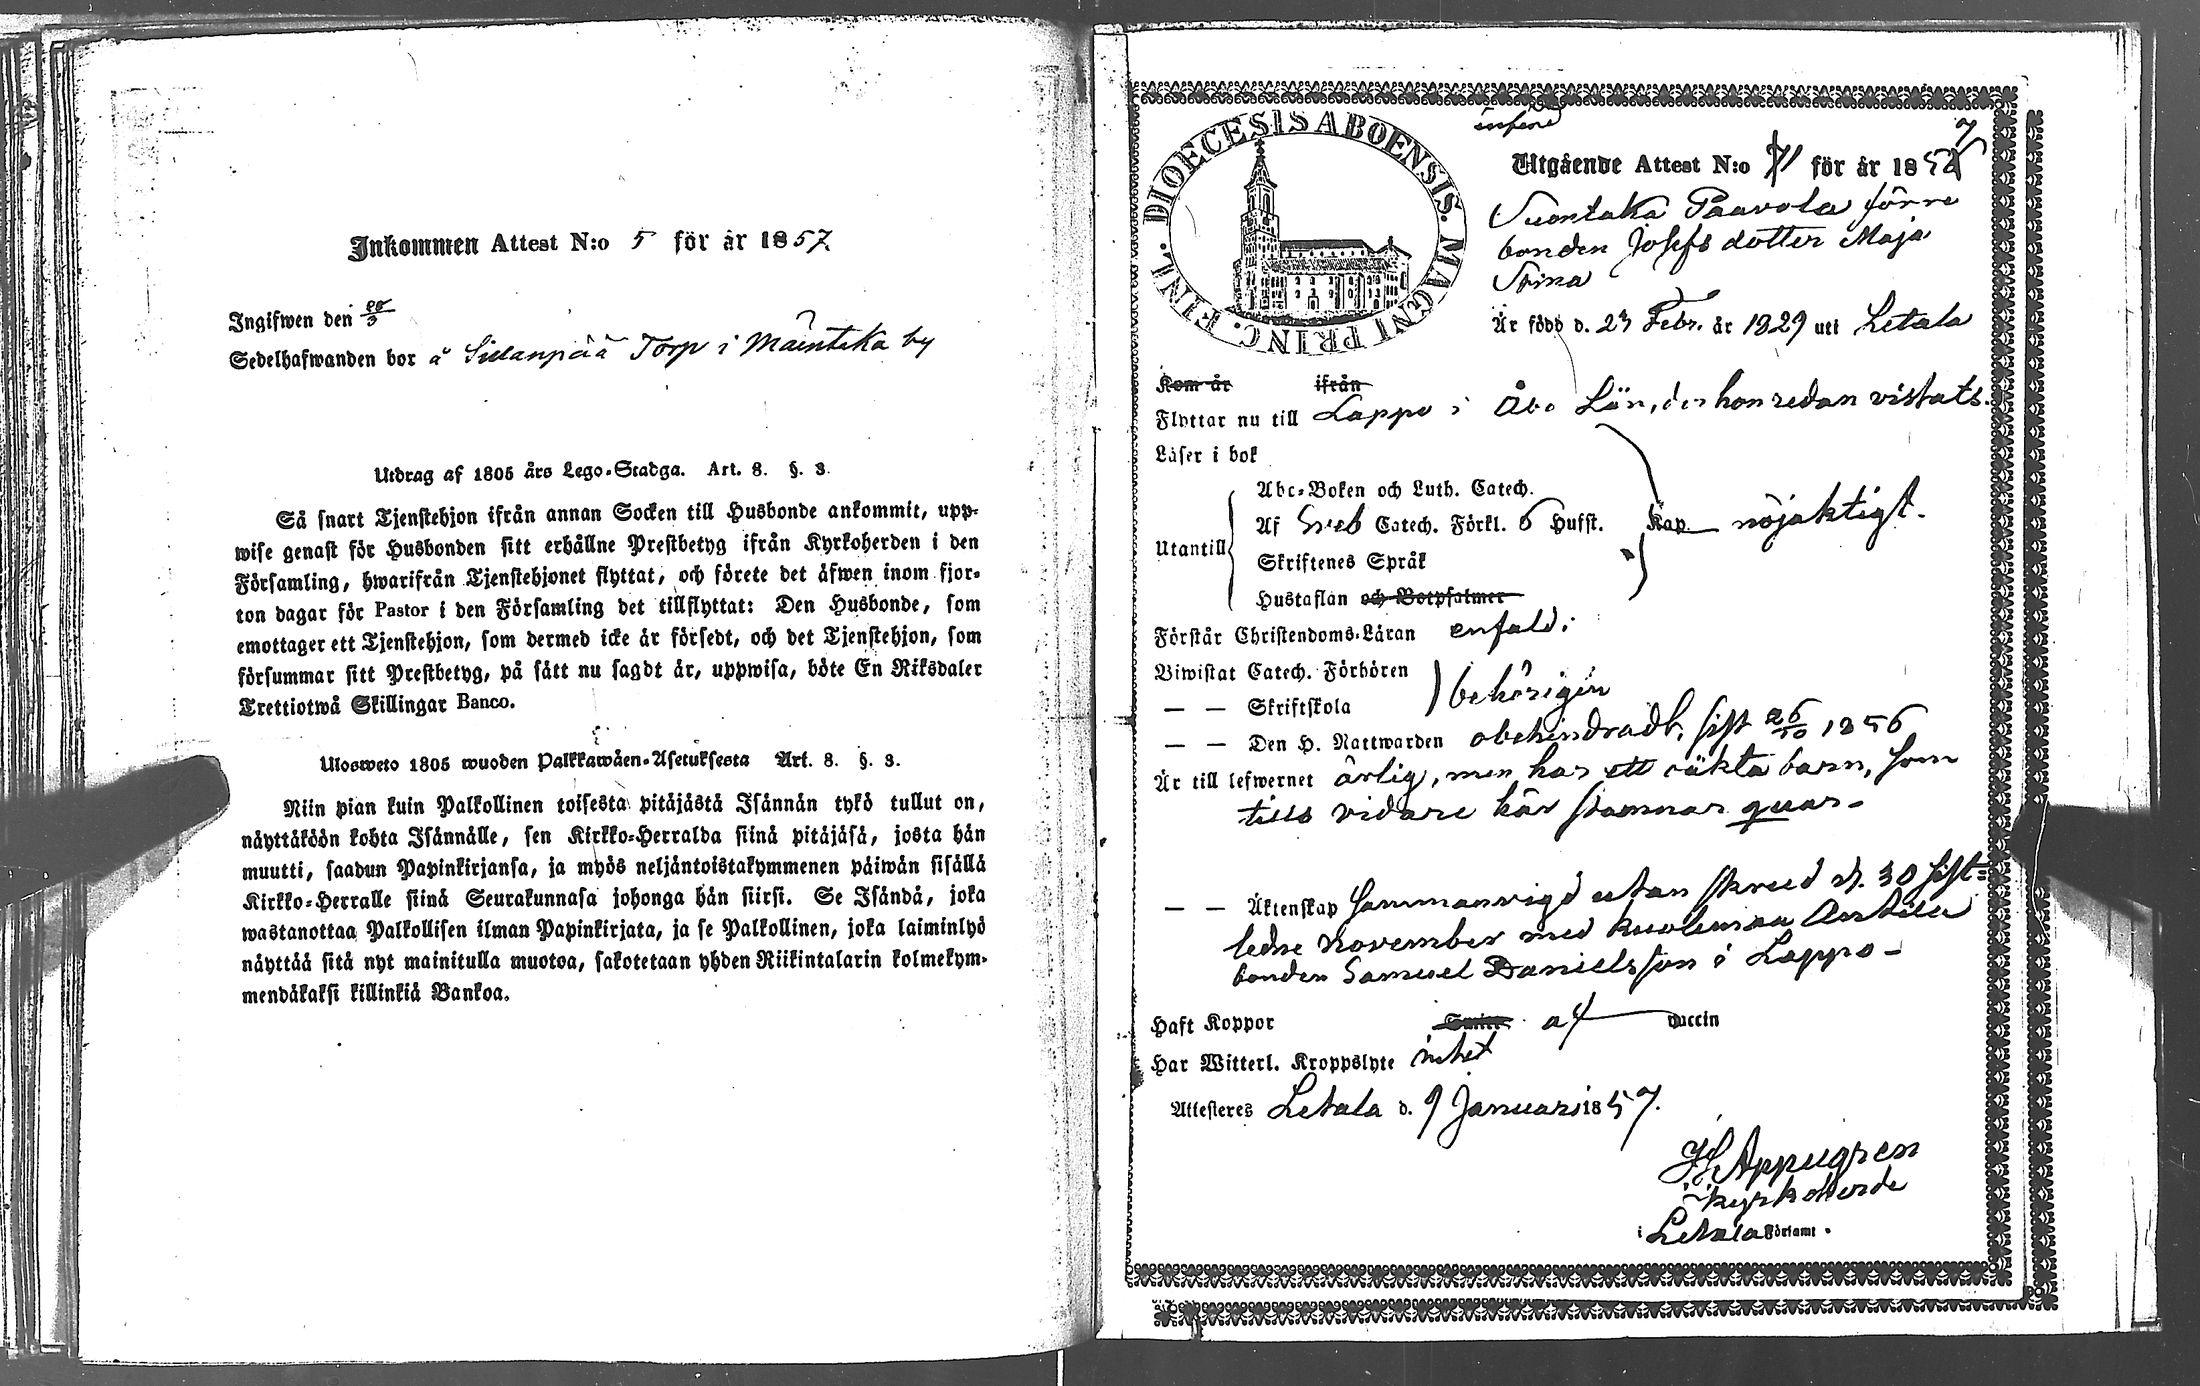 Inkommen Attest N:o 5 för år 1857
Ingifwen den 22/3
Sedelhafwanden bor å Sillanpää Torp i Mäentaka by
Utdrag af 1805 års Lego-Stadga. Art. 8. §. 3.
Så snart Tjenstehjon ifrån annan Socken till Husbonde ankommit, upp-
wise genast för Husbonden sitt erhållne Prestbetyg ifrån Kyrkoherden i den
Församling, hwarifrån Tjenstehjonet flyttat, och förete det äfwen inom fjor-
ton dagar för Pastor i den Församling det tillflyttat: Den Husbonde, som
emottager ett Tjenstehjon, som dermed icke är försedt, och det Tjenstehjon, som
försummar sitt Prestbetyg, på sätt nu sagdt är, uppwisa, böte En Riksdaler
Trettiotwå Skillingar Banco.
Ulosweto 1805 wuoden Palkkawäen-Asetuksesta Art. 8. §. 3.
Niin pian kuin Palkollinen toisesta pitäjästä Isännän tykö tullut on,
näyttäköön kohta Isännälle, sen Kirkko-Herralda siinä pitäjäsä, josta hän
muutti, saadun Papinkirjansa, ja myös neljäntoistakymmenen päiwän sisällä
Kirkko-Herralle siinä Seurakunnasa johonga hän siirsi. Se Isändä, joka
wastanottaa Palkollisen ilman Papinkirjata, ja se Palkollinen, joka laiminlyö
näyttää sitä nyt mainitulla muotoa, sakotetaan yhden Riikintalarin kolmekym-
mendäkaksi killinkiä Bankoa.
DIOECESIS ABOENSIS. MAGNI PRINC. FINL.
Utgående Attest N:o för år 1857
Suontaka Paavola förre
bonden Josefs dotter Maja
Stina
Är född d. 23 Febr. år 1829 uti Letala
Kom år ifrån
Flyttar nu till Lappo i Åbo Län, der hon redan vistats.
Läser i bok
Abc-Boken och Luth. Catech.
Utantill Af Sveb Catech. Förkl. 6 Hufst. Kap nöjaktigt.
Skriftenes Språk
Hustaflan och Botpsalmer
Förstår Christendoms-Läran enfald:
Biwistat Catech. Förhören
— — Skriftskola behörigen
— — Den H. Nattwarden obehindradt, sist 26/10 1856
Är till lefwernet ärlig, men har ett oäkta barn, som
tills vidare här stannar quar-
— — Äktenskap Sammanvigd utan skrud d. 30 sist-
ledne November med Kuolimaa Anttila
bonden Samuel Danielsson i Lappo-
Haft Koppor af vaccin
Har Witterl. Kroppslyte intet
Attesteres Letala d. 9 Januari 1857.
kyrkoherde
i Letala Församl.